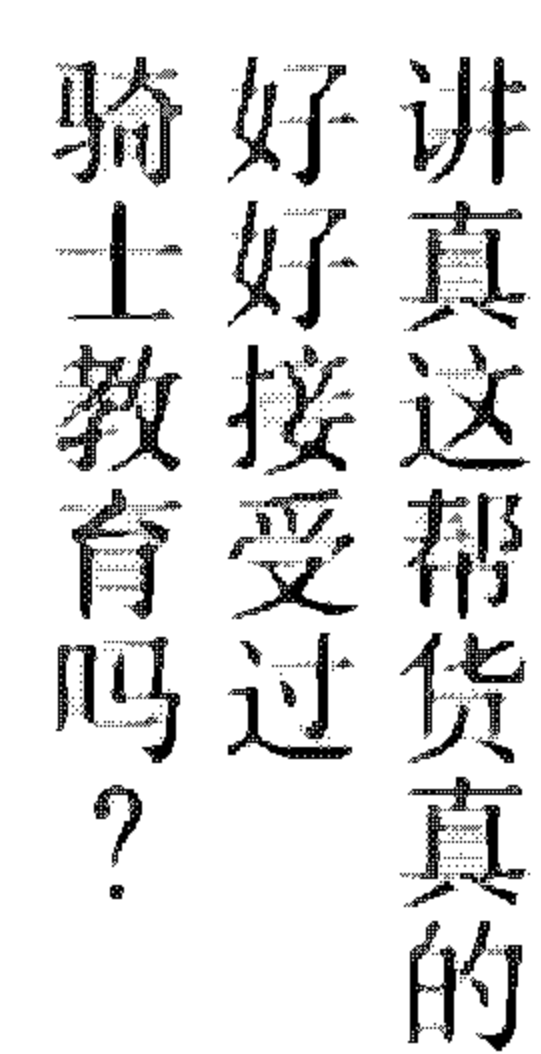 讲真这帮货真的
好好接受过
骑士教育吗？